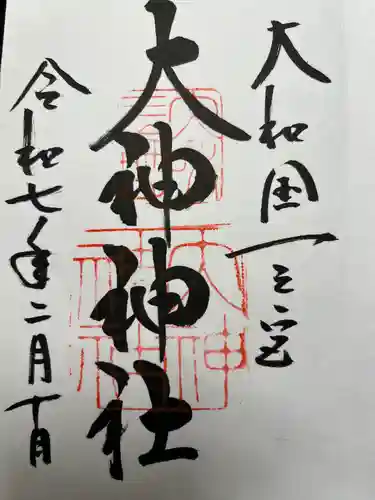 大和国一之宮
大神神社
令和七年二月十日